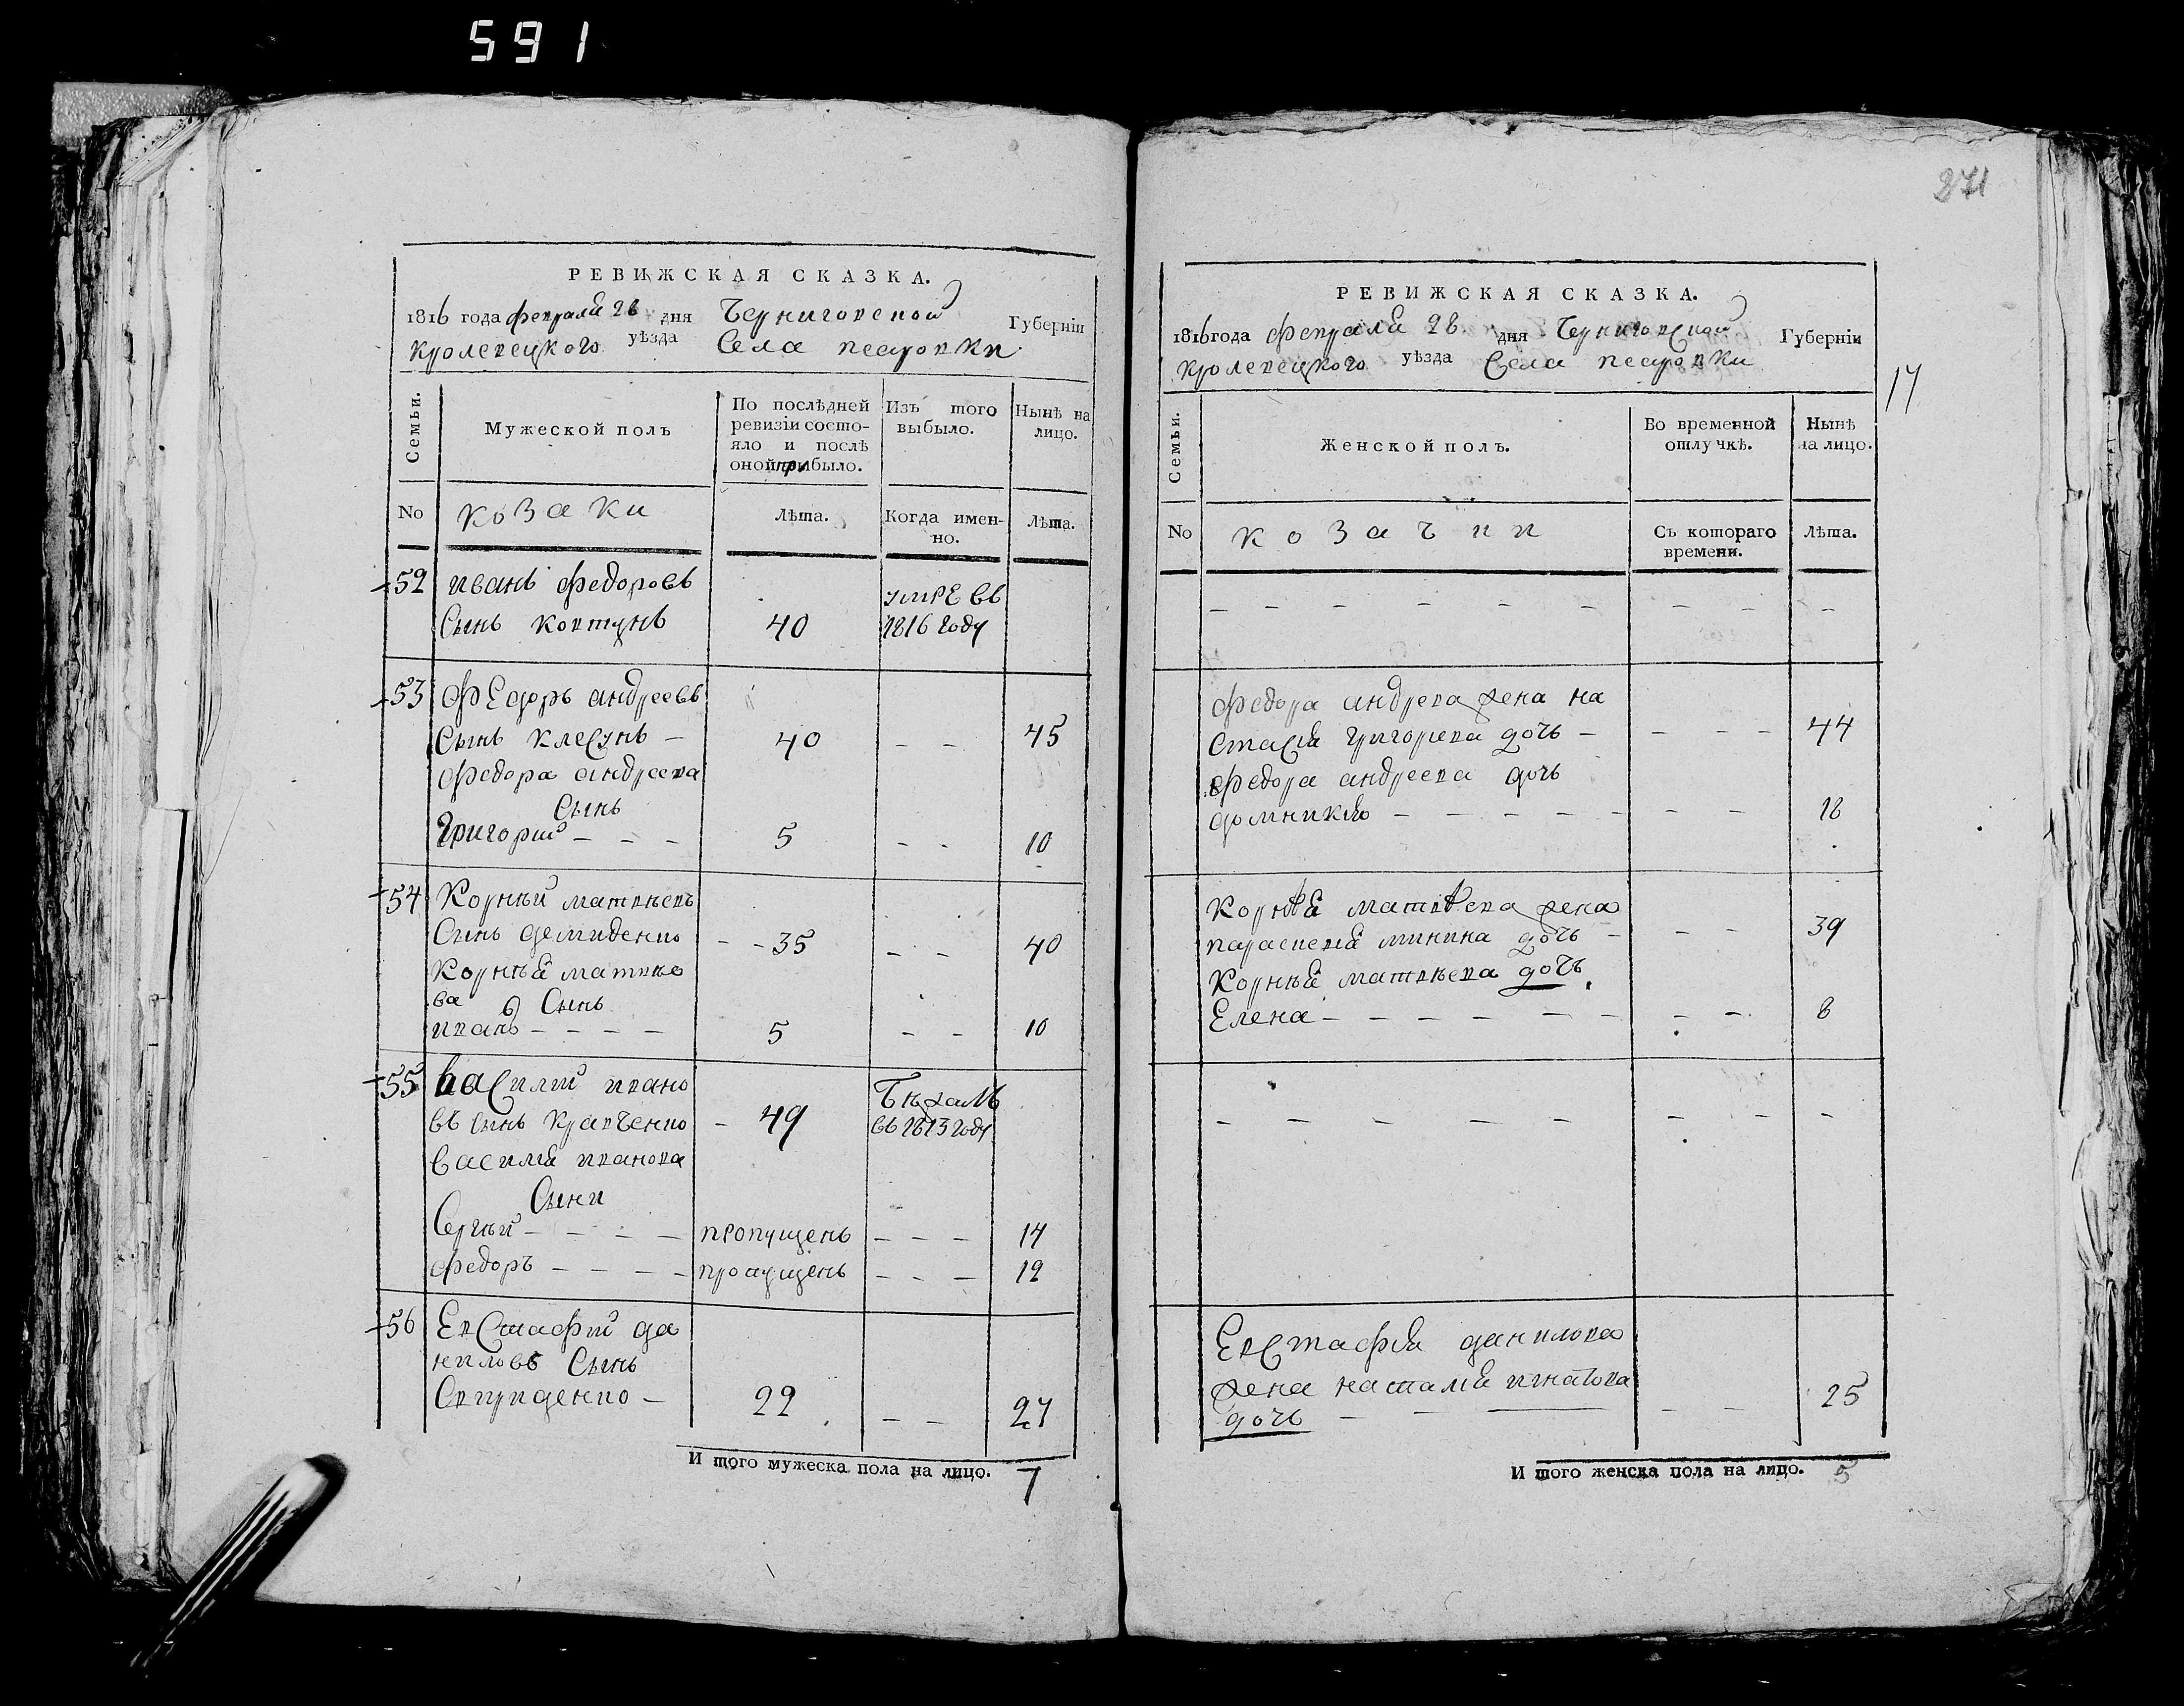 591
271
РЕВИЖСКАЯ СКАЗКА.
1816 года февраля 28 дня Черниговской Губерніи
Кролевецкого уѣзда Села
Семьи.
Мужеской полъ
По послѣдней ревизіи состо-
яло и послѣ
оной прибыло.
Изъ того
выбыло.
Нынѣ на
лицо.
No
козаки
Лѣта.
Когда имен-
но.
Лѣта.
52 иванъ федоровъ
Сынъ ковтунъ 40
умре въ
1816 году
53 Федоръ андреевъ
Сынъ клесунъ – 40 – – 45
федора андреева
Сынъ
Григорий – – – 5 – – 10
54 Корнѣй матвѣевъ
Сынъ демиденко – – 35 – – 40
Корнѣя матвѣе
ва Сынъ
иванъ – – – – 5 – – 10
55 василий ивано
въ сынъ кравченко – 49
бѣжалъ
въ 1813 году
василия иванова
Сыни
Сергѣй – – – – пропущенъ – – – 14
федоръ – – – – пропущенъ – – – 12
56 Евстафий да
ниловъ Сынъ
– 22 – – 27
И того мужеска пола на лицо. 7
РЕВИЖСКАЯ СКАЗКА.
1816 года февраля 28 дня Черниговской Губерніи
кролевецкого уѣзда Села
17
Семьи.
Женской полъ.
Во временной
отлучкѣ.
Нынѣ
на лицо.
No
козачки
Съ котораго
времени.
Лѣта.
– – – – – – – – –
федора андрева жена на
стасия григорева дочь – – – – 44
федора андреева дочь
домникию – – – – – – – 18
Корнѣя матвѣева жена
параскевия минина дочь – – – 39
Корнѣя матвѣева дочь
Елена – – – – – – – – 8
– – – – – – – –
Евстафия данилова
жена наталия игнатова
дочь – – – – – 25
И того женска пола на лицо. 5